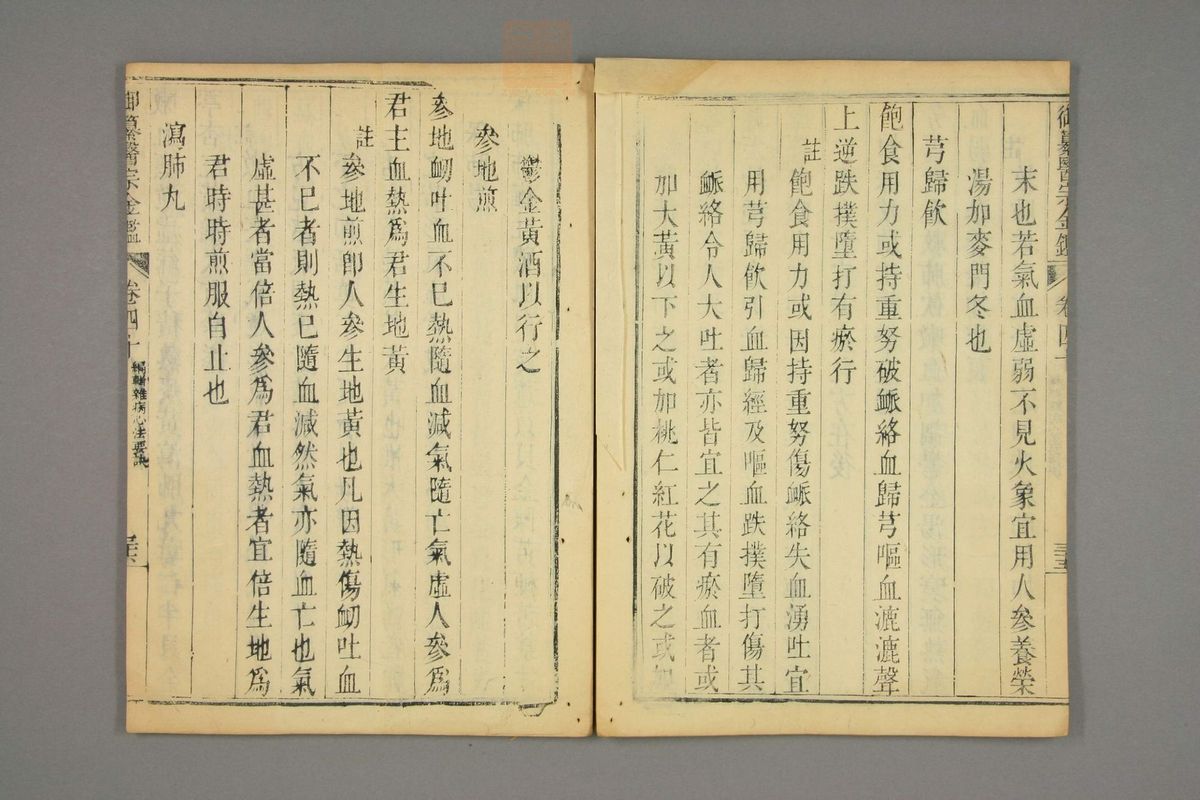 御纂醫宗金鑑 卷四十 三五
末也若氣血虛弱不見火象宜用人參養榮
湯加麥門冬也
芎歸飲
飽食用力或持重努破衇絡血歸芎嘔血漉漉聲
上逆跌撲墮打有瘀行
註飽食用力或因持重努傷衇絡失血湧吐宜
用芎歸飲引血歸經及嘔血跌撲墮打傷其
衇絡令人大吐者亦皆宜之其有瘀血者或
加大黃以下之或加桃仁紅花以破之或加
鬱金黃酒以行之
參地煎
參地衂吐血不已熱隨血減氣隨亡氣虛人參爲
君主血熱爲君生地黃
註參地煎卽人參生地黃也凡因熱傷衂吐血
不已者則熱已隨血減然氣亦隨血亡也氣
虛甚者當倍人參爲君血熱者宜倍生地爲
君時時煎服自止也
瀉肺丸
御纂醫宗金鑑 卷四十 編輯雜病心法要訣 三六